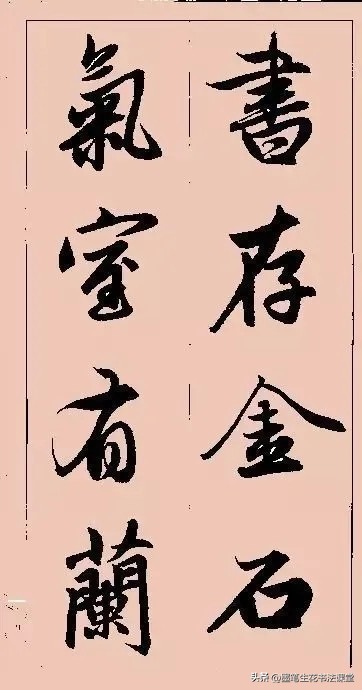 書存金石
氣室有蘭
头条 @墨笔生花书法课堂